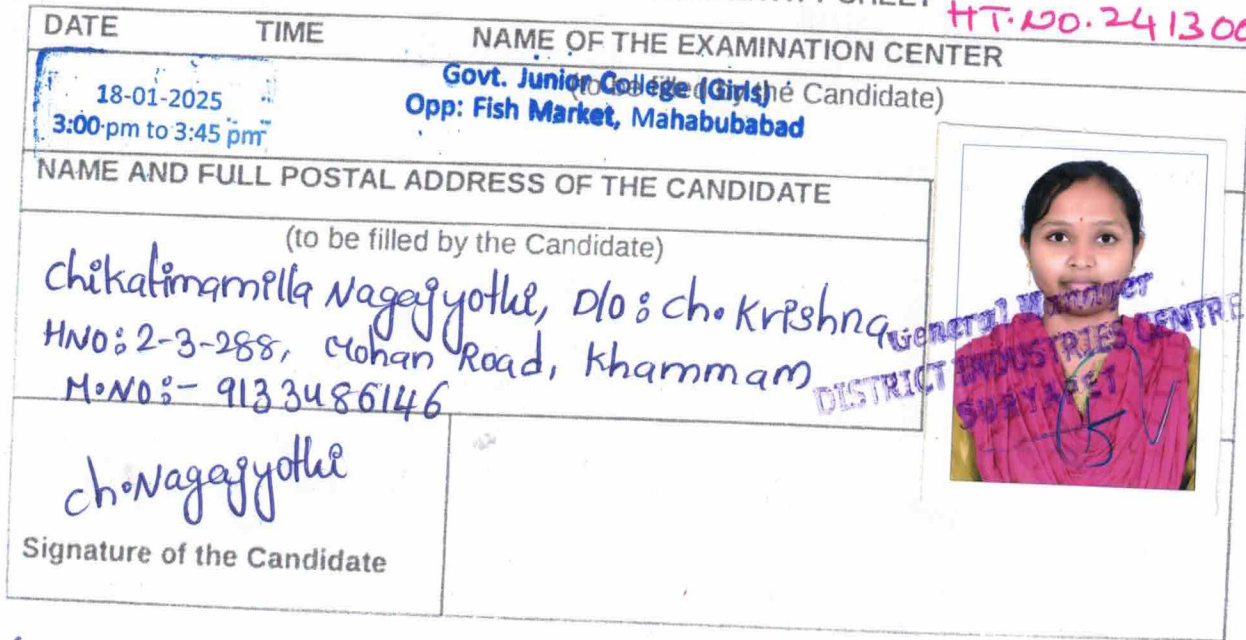 HT.NO.241300
DATE TIME NAME OF THE EXAMINATION CENTER
(to be filled by the Candidate)
18-01-2025
3:00 pm to 3:45 pm
Govt. Junior College (Girls)
Opp: Fish Market, Mahabubabad
NAME AND FULL POSTAL ADDRESS OF THE CANDIDATE
(to be filled by the Candidate)
Chikatimamilla Nagajyothi, D/o: Ch. Krishna
HNO: 2-3-288, Mohan Road, Khammam
M.NO:- 9133486146
General Manager
DISTRICT INDUSTRIES CENTRE
SURYAPET
Ch.Nagajyothi
Signature of the Candidate